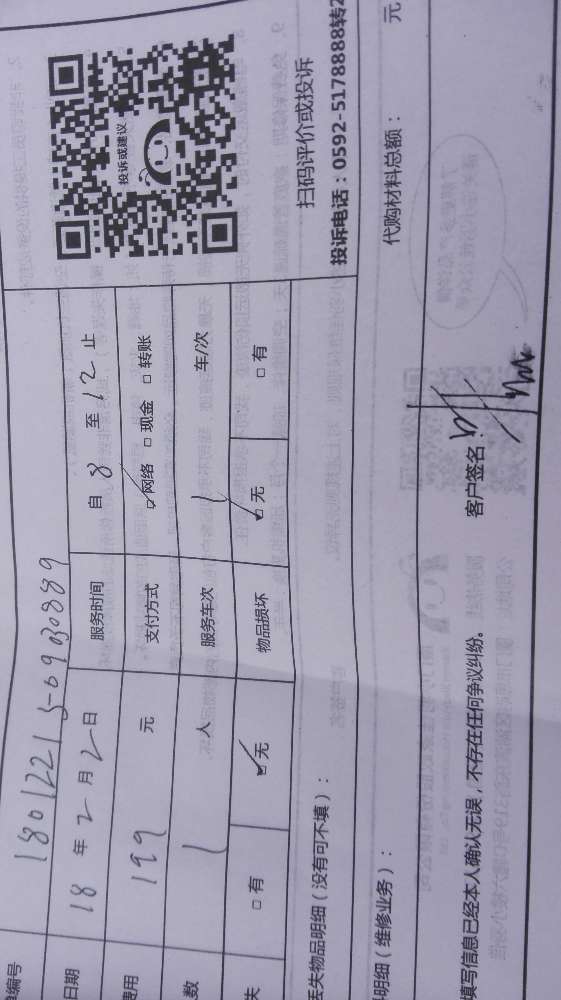 编号 18012215-09030889
日期 18 年 2 月 2 日 服务时间 自 8 至 12 止
费用 199 元 支付方式 ☑网络 □现金 □转账
数 1 人 服务车次 1 车/次
失 □有 ☑无 物品损坏 ☑无 □有
投诉或建议
扫码评价或投诉
投诉电话：0592-5178888转2
丢失物品明细（没有可不填）：
明细（维修业务）： 代购材料总额： 元
填写信息已经本人确认无误，不存在任何争议纠纷。 客户签名：